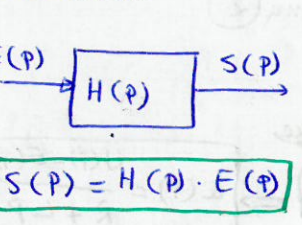 E(P)
S(P)
H(P)
S(P) = H(P) . E(P)